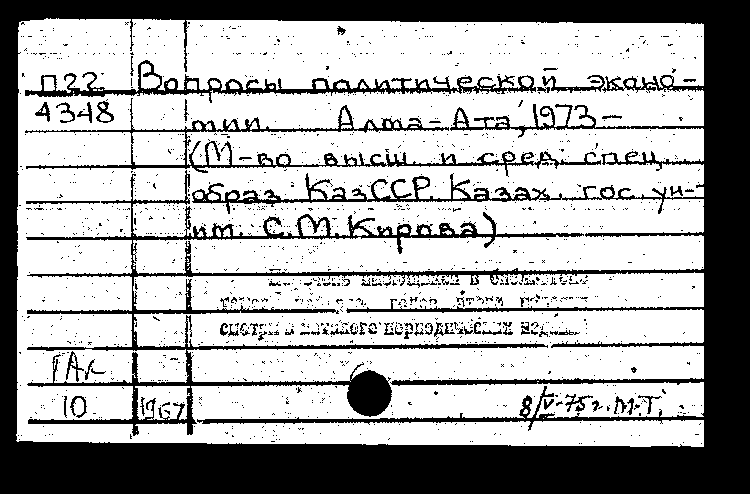 П22 Вопросы политической эконо-
4348
мии. Алма-Ата, 1973-
(М-во высш. и сред. спец.
образ. КазССР. Казах. гос. ун-т
им. С.М. Кирова)
в библиотеке
смотри в каталоге периодических издан
ГАК
10 1967 8/V-75 г. М.Т.